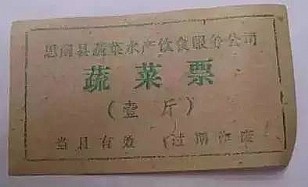 思南县蔬菜水产饮食服务公司
蔬菜票
(壹斤)
当日有效 过期作废